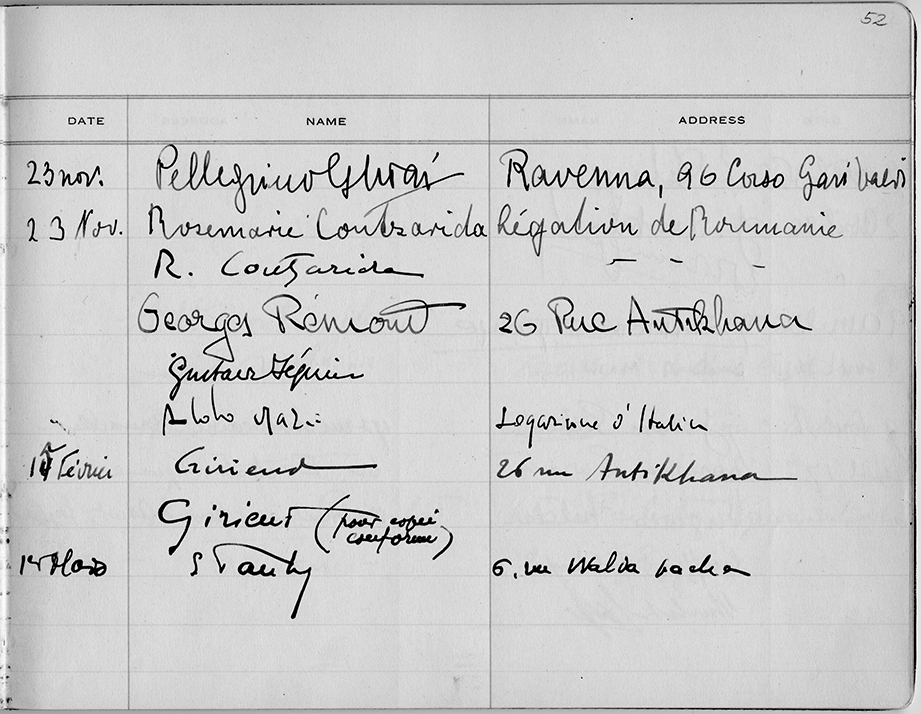 52
DATE NAME ADDRESS
23 nov. Pellegrino Ravenna, 96 Corso Garibaldi
23 Nov. Rosemarie Contzarida Légation de Roumanie
R. Contzarida - - -
Georges Rémond 26 Rue Antikhana
Gustave Jéquier
Aldo d'Italia
Février Girieud 26 rue Antikhana
Girieud (pour copie conforme)
6, rue